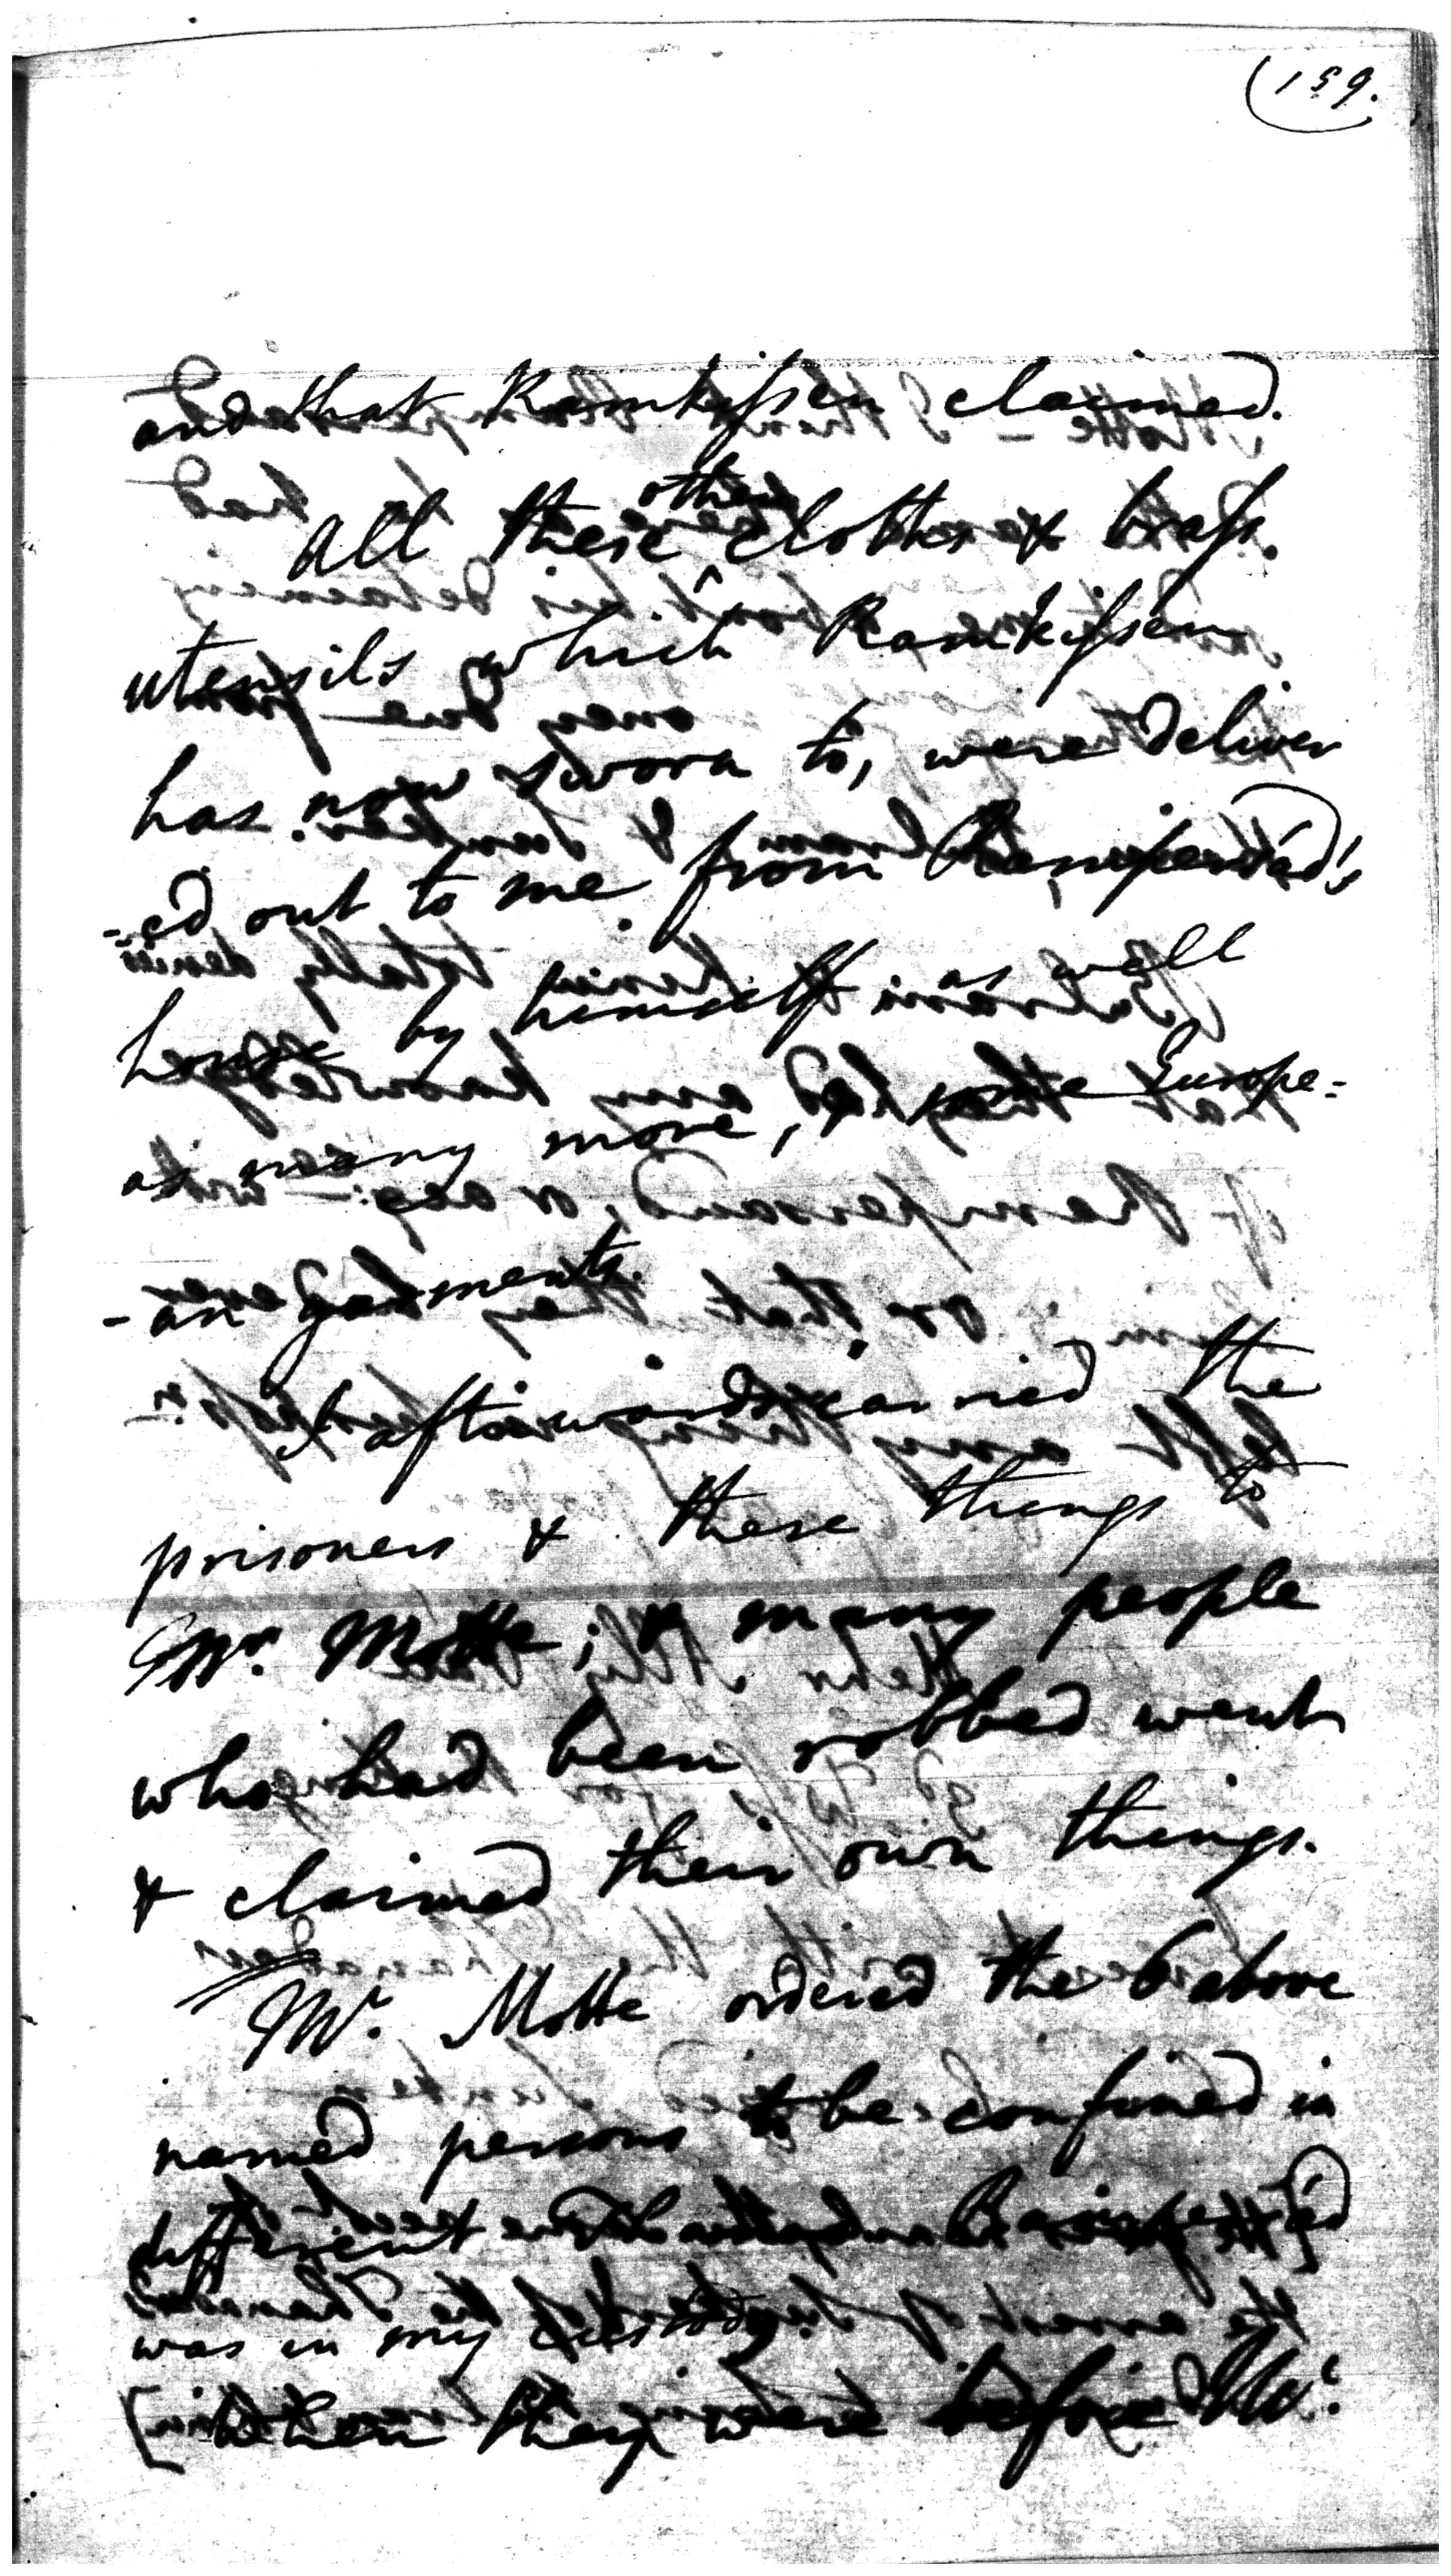 (159.
and that Ramkissen claimed.
All these other clothes & brass
utensils which Ramkissen
has now sworn to, were deliver
-ed out to me from Rampersad's
house by himself as well
as many more, & some Europe=
-an garments.
I afterwards carried the
prisoners & these things to
Mr. Motte; & many people
who had been robbed went
& claimed their own things.
Mr. Motte ordered the 6 above
named persons to be confined in
different
was in my custody.
[when they were before Mr.